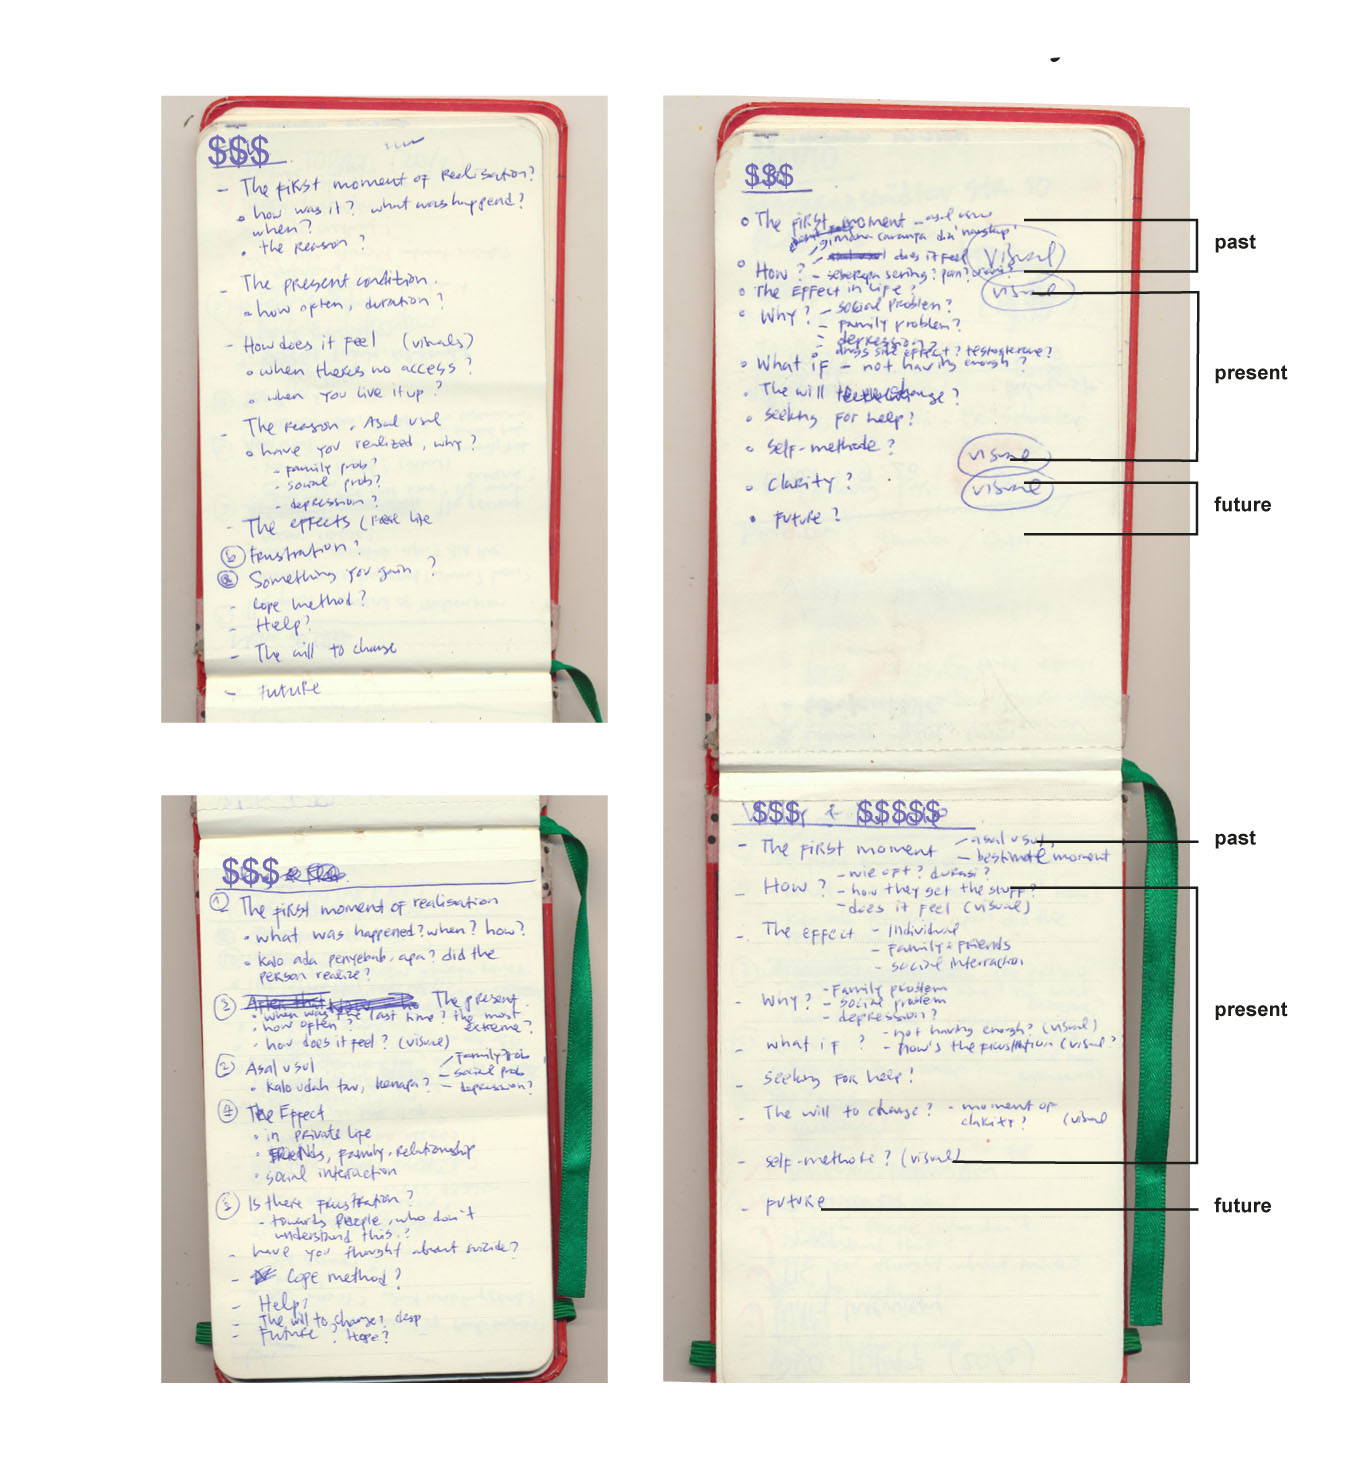 $$$
- The first moment of realisation?
• how was it? what was happend?
when?
• the reason?
- The present condition.
• how often, duration?
- How does it feel (visuals)
• when theres no access?
• when you live it up?
- The reason, Asal usul
• have you realized, why?
- family prob?
- social prob?
- depression?
- The effects (real life
b Frustration?
a Something you gain ?
- Cope method?
- Help?
- The will to change
- Future
$$$
1 The first moment of realisation
• what was happened? when? how?
• kalo ada penyebab, apa? did the
person realize?
3 After that The present
• when was the last time? the most
extreme?
• how often?
• how does it feel? (visual)
2 Asal usul
- Family prob
- social prob
• Kalo udah tau, kenapa? - depression?
4 The Effect
• in private life
• Friends, family, relationship
• social interaction
5 Is there frustration?
- towards people, who don't
understand this.?
- have you thought about suicide?
- Cope method?
- Help?
- The will to change?
- Future
$$$
• The first moment - asal usul
gimana caranya
does it feel
visual
• How? - seberapa sering?
• The Effect in Life?
visual
• Why? - social problem?
- family problem?
- depression?
• drugs side effect? testosterone?
• What if - not having enough?
• The will to change?
• seeking for help?
• self-methode?
visual
• clarity?
visual
• Future?
past
present
future
$$$ + $$$$$
- The first moment - asal usul,
- bestimmte moment
- How? - wie oft? durasi?
- how they get the stuff?
- does it feel (visual)
- The effect - Individual
- Family + friends
- social interaction
- Why? - Family problem
- social problem
- depression?
- what if ? - not having enough? (visual)
- how's the frustration (visual?
- seeking for help!
- The will to change? - moment of
clarity? (visual
- self-methode? (visual)
- future
past
present
future